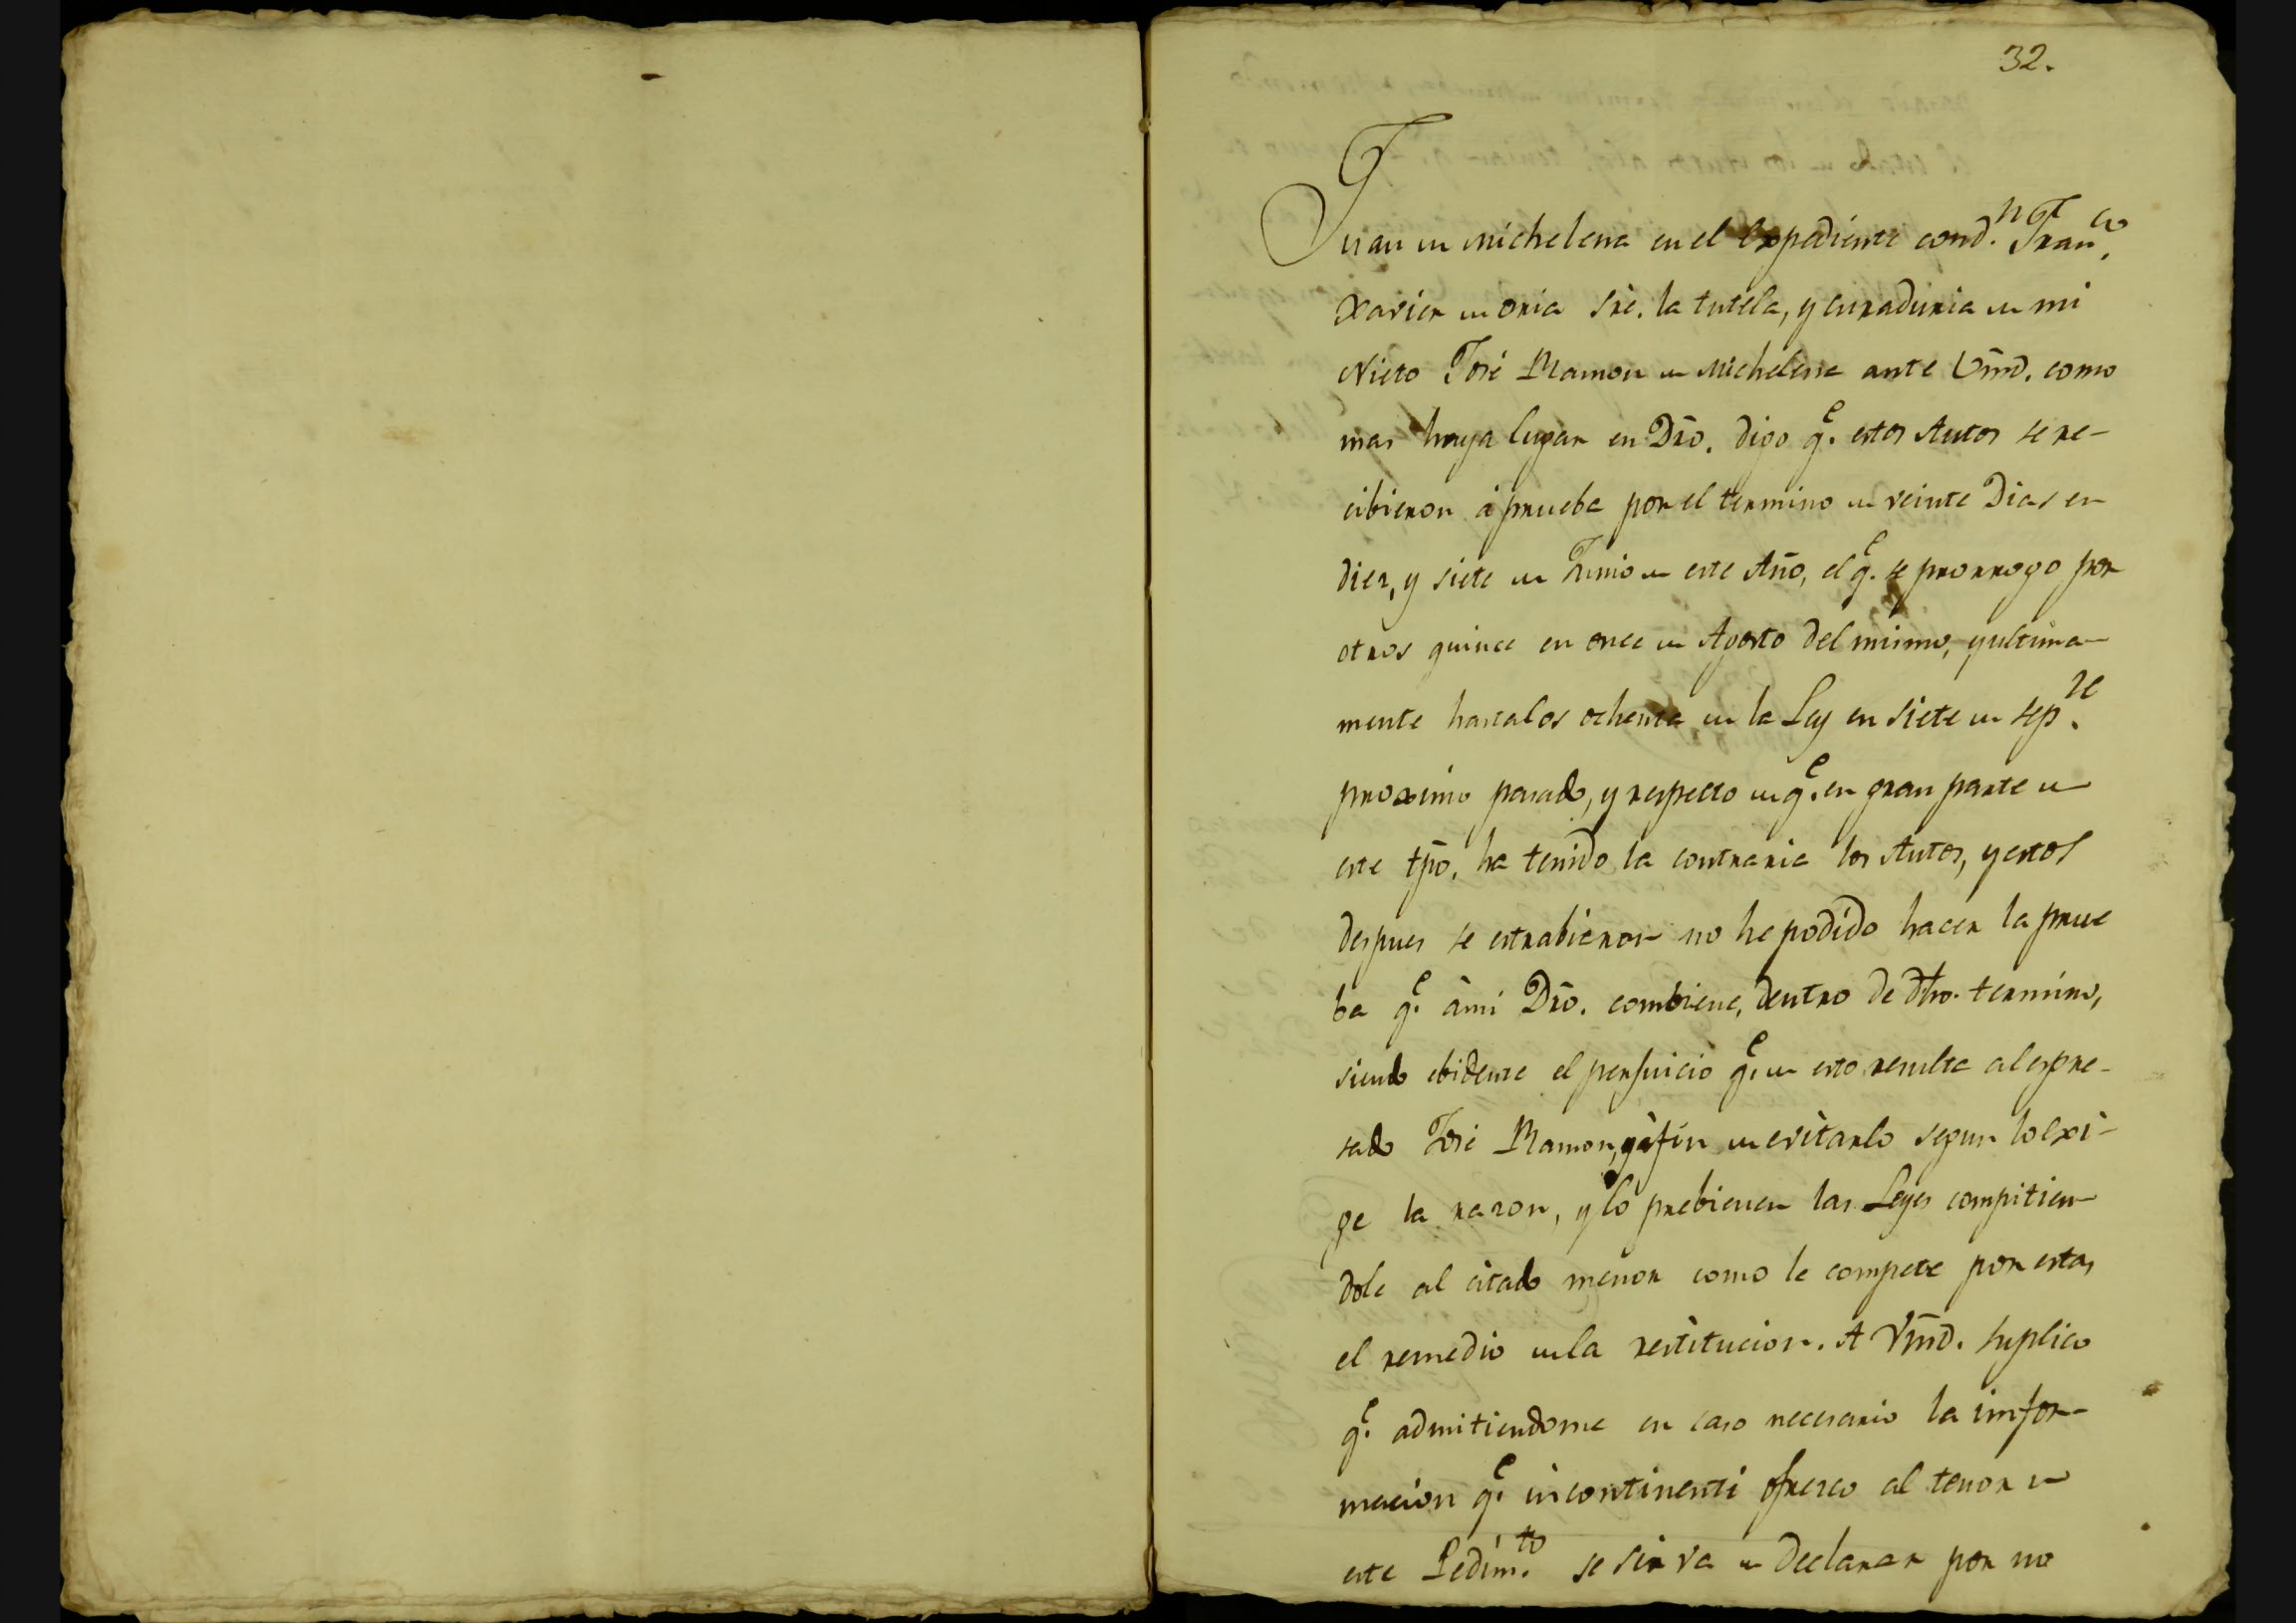 32.
Juan de Michelena en el Expediente con d.n Fran.co
Xavier de Oria sre. la tutela, y curaduria de mi
Nieto José Ramon de Michelena ante Vmd. como
mas haya lugar en Dro. digo q.e estos Autos se re-
cibieron á prueba por el termino de veinte Dias en
diez, y siete de Junio de este Año, el q.e se prorrogo por
otros quince en once de Agosto del mismo, y ultima-
mente hasta los ochenta de la Ley en siete de Sep.re
proximo pasado, y respecto de q.e en gran parte de
este tpo. ha tenido la contraria los Autos, y estos
despues se estrabieron no he podido hacer la prue
ba q.e ámi Dro. combiene, dentro de dho. termino,
siendo ebidente el perjuicio q.e de esto resulta al espre-
sado José Ramon, y áfin de evitarlo segun lo exi-
ge la razon, y lo prebienen las Leyes compitien
dole al citado menor como le compete por estas
el remedio de la restitucion. A Vmd. suplico
q.e admitiendome en caso necesario la imfor-
macion q.e incontinenti ofresco al tenor de
este Pedim.to se sirva de declarar por no